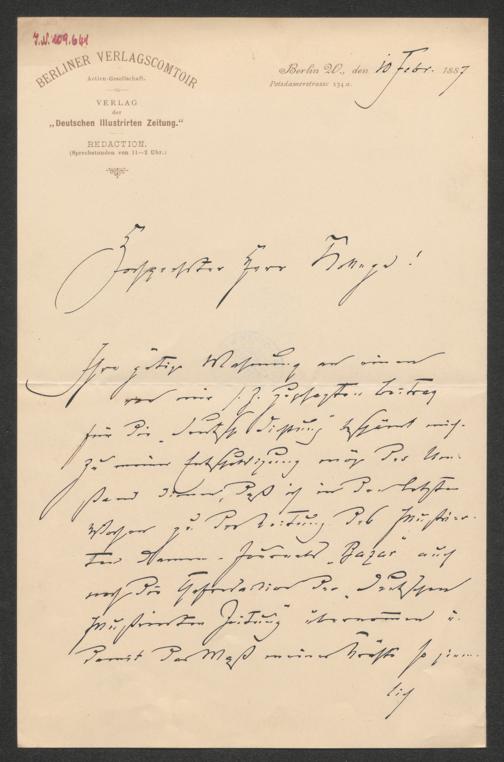 I.N. 109.641
BERLINER VERLAGSCOMTOIR
Actien-Gesellschaft.
VERLAG
der
„Deutschen Illustrirten Zeitung."
REDACTION.
(Sprechstunden von 11—2 Uhr.)
Berlin W., den 10 Febr. 1887
Potsdamerstrasse
Hochgeehrter Herr College!
Ihre gütige Mahnung an einen
von mir s. Z. zugesagten Beitrag
für die „Deutsche Dichtung" beschämt mich.
Zu meiner Entschuldigung möge der Um-
stand dienen, daß ich in den letzten
Wochen zu der Leitung des Illustrir-
ten Damen-Journals „Bazar" auch
noch die Chefredaction der „Deutschen
Illustrirten Zeitung" übernommen u.
damit das Maß meiner Kräfte so ziem-
lich